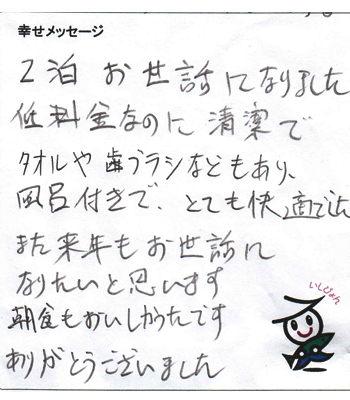 幸せメッセージ
2泊 お世話になりました
低料金なのに 清潔で
タオルや歯ブラシなどもあり、
風呂付きで、とても快適でした
また来年もお世話に
なりたいと思います
朝食もおいしかったです
ありがとうございました
いしじょん